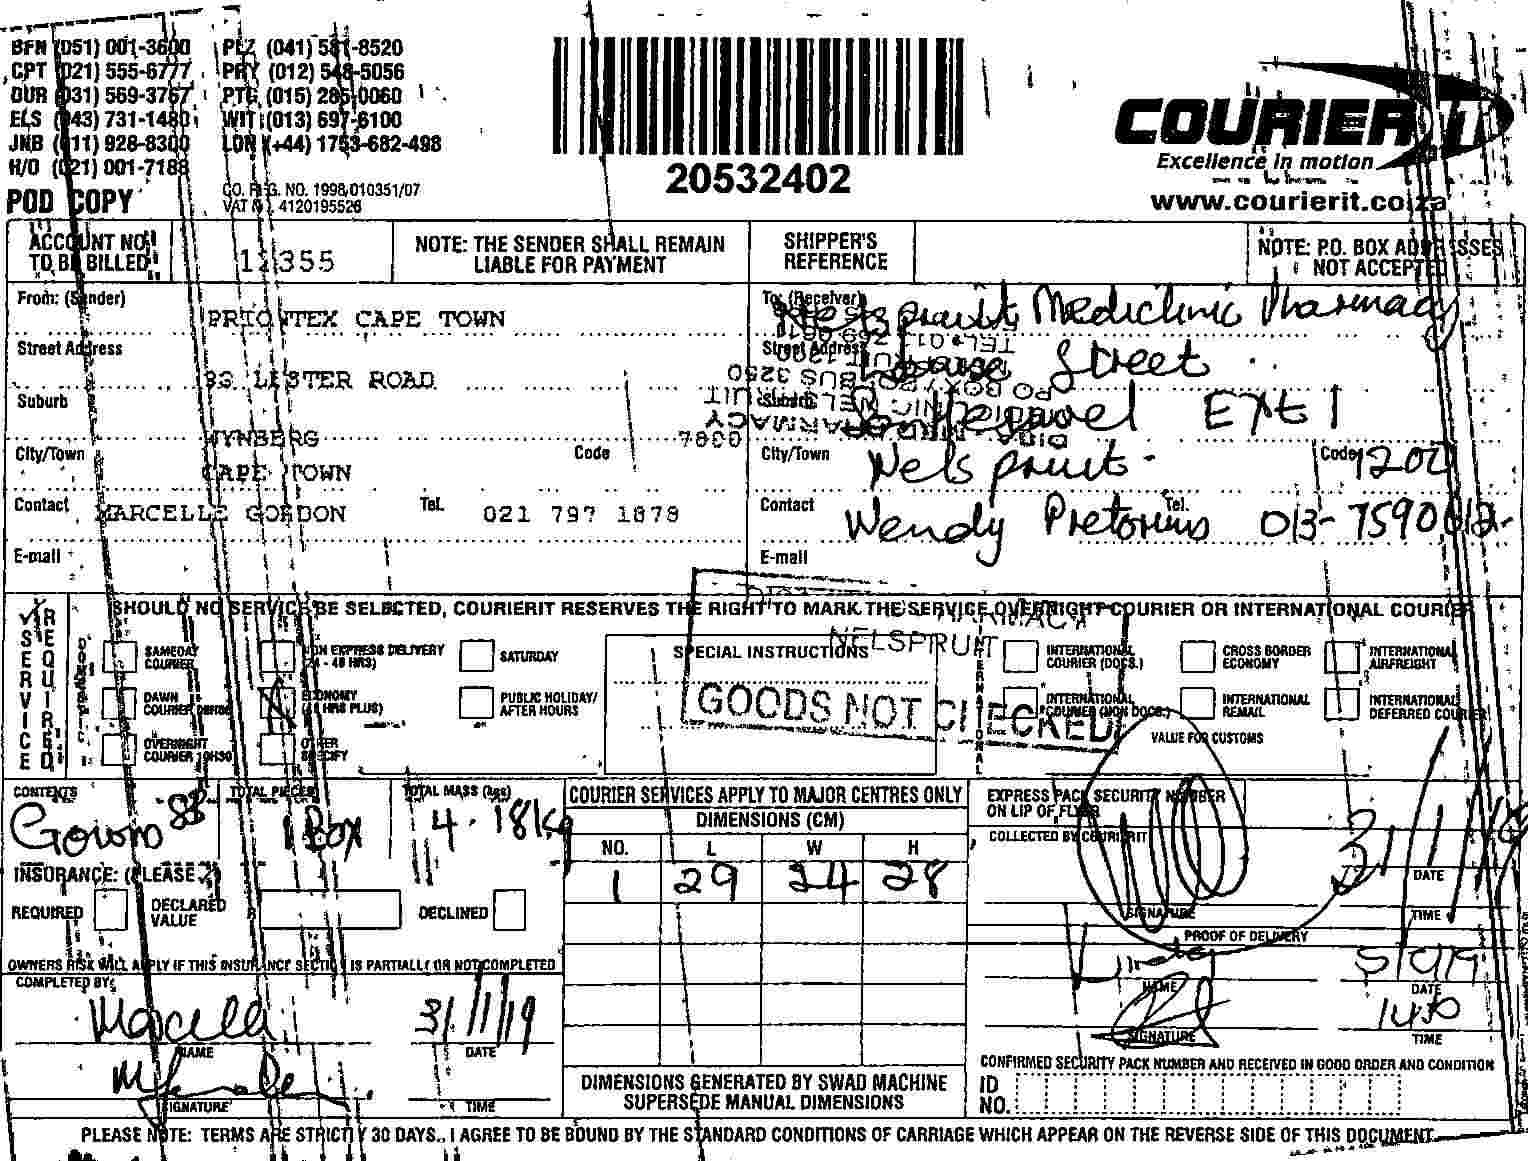 BFN (051) 001-3600 PLZ (041) 581-8520
CPT (021) 555-6777 PRY (012) 548-5056
DUR (031) 569-3767 PTG (015) 285-0060
ELS (043) 731-1480 WIT (013) 697-6100
JNB (011) 928-8300 LDN (+44) 1753-682-498
H/O (021) 001-7188
POD COPY
CO. REG. NO. 1998/010351/07
VAT NO. 4120195526
20532402
COURIER IT
Excellence in motion
www.courierit.co.za
ACCOUNT NO. TO BE BILLED
12355
NOTE: THE SENDER SHALL REMAIN LIABLE FOR PAYMENT
SHIPPER'S REFERENCE
NOTE: P.O. BOX ADDRESSES NOT ACCEPTED
From: (Sender)
PRIONTEX CAPE TOWN
Street Address
93 LESTER ROAD
Suburb
WYNBERG
City/Town
CAPE TOWN
Code
Contact MARCELLE GORDON Tel. 021 797 1878
E-mail
To: (Receiver)
Nelspruit Mediclinic Pharmacy
Street Address
Louise Street
Suburb
EXT 1
City/Town Nelspruit Code 1200
Contact Wendy Pretorius Tel. 013-7590
E-mail
SHOULD NO SERVICE BE SELECTED, COURIERIT RESERVES THE RIGHT TO MARK THE SERVICE OVERNIGHT COURIER OR INTERNATIONAL COURIER
SERVICE REQUIRED
SAMEDAY COURIER
DAWN COURIER
OVERNIGHT COURIER 10H30
NON EXPRESS DELIVERY (24 - 48 HRS)
ECONOMY (48 HRS PLUS)
OTHER SPECIFY
SATURDAY
PUBLIC HOLIDAY/ AFTER HOURS
SPECIAL INSTRUCTIONS
PHARMACY
NELSPRUIT
GOODS NOT CHECKED
INTERNATIONAL
INTERNATIONAL COURIER (DOCS.)
INTERNATIONAL COURIER (NON DOCS.)
CROSS BORDER ECONOMY
INTERNATIONAL REMAIL
INTERNATIONAL AIRFREIGHT
INTERNATIONAL DEFERRED COURIER
VALUE FOR CUSTOMS
CONTENTS
TOTAL PIECES
1 Box
TOTAL MASS (kgs)
4.18kg
INSURANCE: (PLEASE
REQUIRED
DECLARED VALUE R
DECLINED
OWNERS RISK WILL APPLY IF THIS INSURANCE SECTION IS PARTIALLY OR NOT COMPLETED
COMPLETED BY:
Marcelle
NAME
31/1/19
DATE
SIGNATURE
TIME
COURIER SERVICES APPLY TO MAJOR CENTRES ONLY
DIMENSIONS (CM)
NO. L W H
1 29 24 28
DIMENSIONS GENERATED BY SWAD MACHINE
SUPERSEDE MANUAL DIMENSIONS
EXPRESS PACK SECURITY NUMBER
ON LIP OF FLYER
COLLECTED BY COURIERIT
31/1/19
DATE
SIGNATURE
TIME
PROOF OF DELIVERY
NAME
DATE
SIGNATURE
TIME
CONFIRMED SECURITY PACK NUMBER AND RECEIVED IN GOOD ORDER AND CONDITION
ID NO.
PLEASE NOTE: TERMS ARE STRICTLY 30 DAYS., I AGREE TO BE BOUND BY THE STANDARD CONDITIONS OF CARRIAGE WHICH APPEAR ON THE REVERSE SIDE OF THIS DOCUMENT